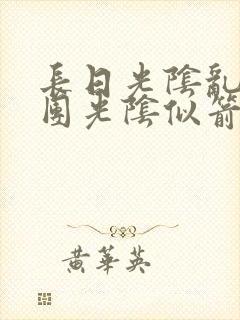 長日光陰亂
團光陰似箭
黃華英